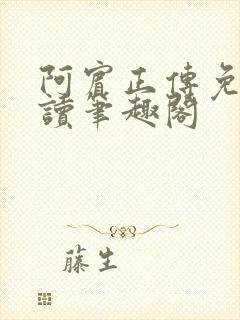 阿賓正傳免
讀筆趣閣
藤生